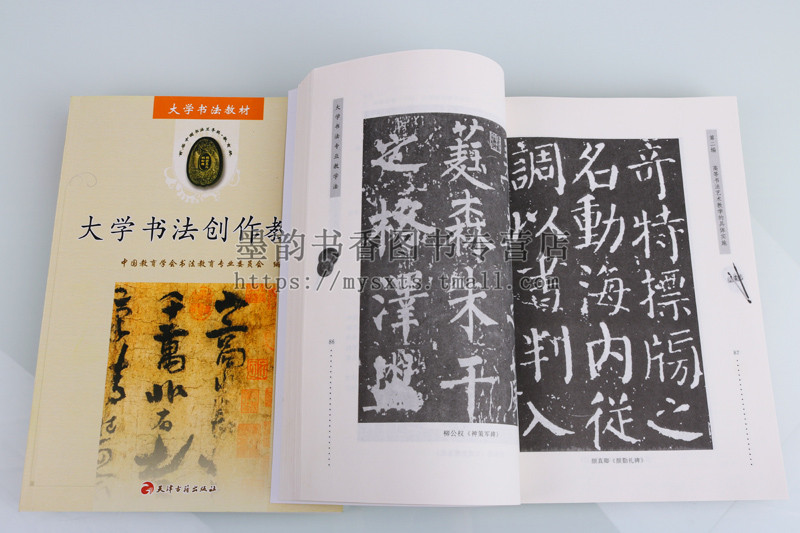 大学书法教材
大学书法创作教
中国教育学会书法教育专业委员会 编
天津古籍出版社
大学书法专业教学法
森未干
格澤盟
86
柳公权《神策军碑》
第二编 高等书法艺术教学的具体实施
奇特標牓之
名動海内従
調以書判入
87
颜真卿《颜勤礼碑》
墨韵书香图书专营店
https://mysxts.tmall.com